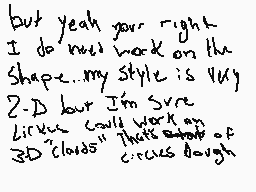 but yeah your right
I do need work on the
shape...my style is very
2-D but I'm sure
circus could work on
3D "clouds" That's of
circles Dough